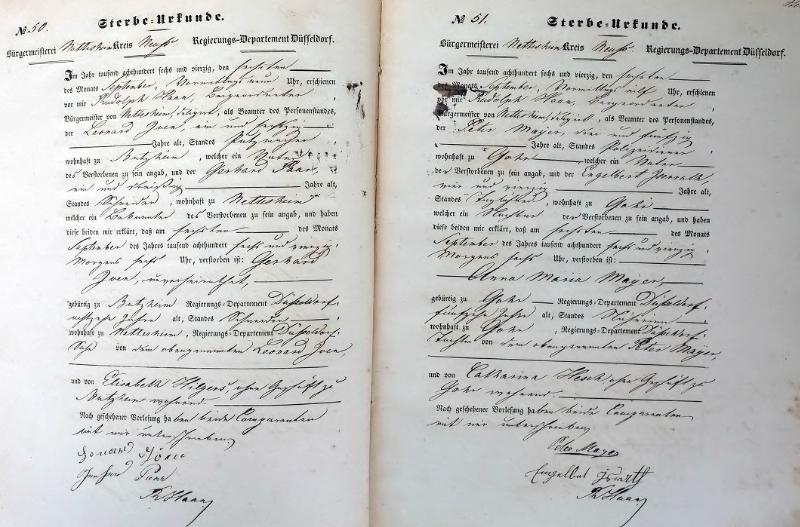 № 50.
Sterbe-Urkunde.
Bürgermeisterei Nettesheim Kreis Neuß Regierungs-Departement Düsseldorf.
Im Jahr tausend achthundert sechs und vierzig, den sechsten
des Monats September, Vormittags neun Uhr, erschienen
vor mir Rudolph Haan, Beigeordneter
Bürgermeister von Nettesheim, als Beamter des Personenstandes,
der Leonard ein und
Jahre alt, Standes
wohnhaft zu Butzheim, welcher ein Vater
des Verstorbenen zu sein angab, und der Gerhard
ein und dreißig Jahre alt,
Standes Schreiner, wohnhaft zu Nettesheim
welcher ein Bekannter des Verstorbenen zu sein angab, und haben
diese beiden mir erklärt, daß am sechsten des Monats
September des Jahres tausend achthundert sechs und vierzig
Morgens sechs Uhr, verstorben ist: Gerhard
unverheirathet,
gebürtig zu Butzheim Regierungs-Departement Düsseldorf
Jahre alt, Standes Schneider
wohnhaft zu Nettesheim, Regierungs-Departement Düsseldorf
Sohn von dem obengenannten Leonard
und von Elisabeth Hilgers ohne Geschäft zu
Butzheim wohnend
Nach geschehener Vorlesung haben beide Comparenten
mit mir unterschrieben
Haan
№ 51.
Sterbe-Urkunde.
Bürgermeisterei Nettesheim Kreis Neuß Regierungs-Departement Düsseldorf.
Im Jahr tausend achthundert sechs und vierzig, den sechsten
des Monats September, Vormittags elf Uhr, erschienen
vor mir Rudolph Haan, Beigeordneter
Bürgermeister von Nettesheim, als Beamter des Personenstandes,
der Peter Mayer, drei und fünfzig
Jahre alt, Standes Polizeidiener
wohnhaft zu Gohr welcher ein Vater
der Verstorbenen zu sein angab, und der Engelbert
vier und vierzig Jahre alt,
Standes Taglöhner, wohnhaft zu Gohr
welcher ein Nachbar der Verstorbenen zu sein angab, und haben
diese beiden mir erklärt, daß am sechsten des Monats
September des Jahres tausend achthundert sechs und vierzig
Morgens sechs Uhr, verstorben ist:
Anna Maria Mayer,
gebürtig zu Gohr Regierungs-Departement Düsseldorf
fünfzehn Jahre alt, Standes
wohnhaft zu Gohr, Regierungs-Departement Düsseldorf
Tochter von dem obengenannten Peter Mayer,
und von Catharina ohne Geschäft zu
Gohr wohnend
Nach geschehener Vorlesung haben beide Comparenten
mit mir unterschrieben
Peter Mayer
Engelbert
Haan